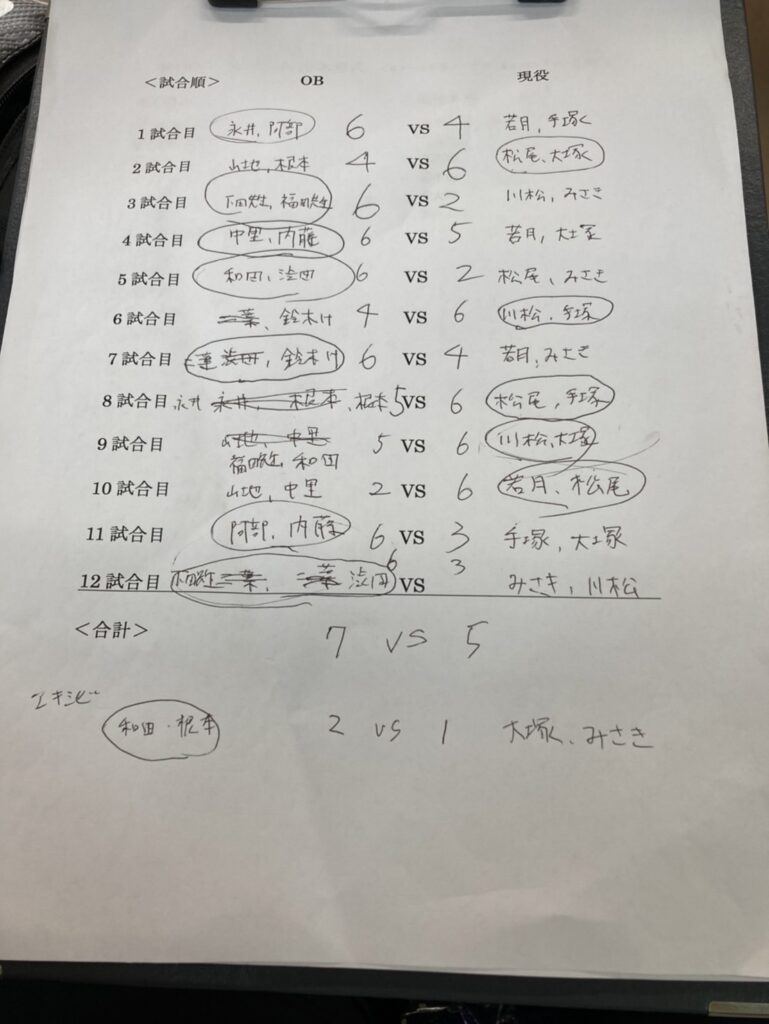 <試合順> OB 現役
1試合目 永井、阿部 6 vs 4 若月、手塚
2試合目 山地、根本 4 vs 6 松尾、大塚
3試合目 福田 6 vs 2 川松、みさき
4試合目 中里、内藤 6 vs 5 若月、大塚
5試合目 和田、澁田 6 vs 2 松尾、みさき
6試合目 三葉、鈴木け 4 vs 6 川松、手塚
7試合目 鈴木け 6 vs 4 若月、みさき
8試合目 永井 永井、根本、根本 5 vs 6 松尾、手塚
9試合目 山地、中里 5 vs 6 川松、大塚
福田 和田
10試合目 山地、中里 2 vs 6 若月、松尾
11試合目 阿部、内藤 6 vs 3 手塚、大塚
12試合目 三葉、澁田 6 vs 3 みさき、川松
<合計> 7 vs 5
エキシビ
和田・根本 2 vs 1 大塚、みさき